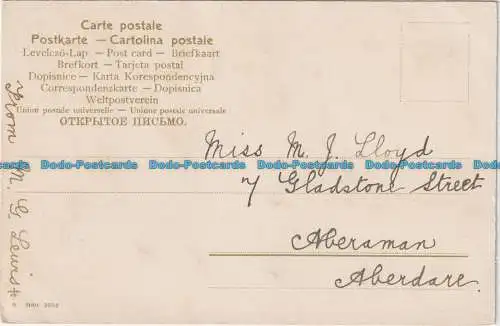 Carte postale
Postkarte — Cartolina postale
Levelező-Lap — Post card — Briefkaart
Brefkort — Tarjeta postal
Dopisnice — Karta Korespondencyjna
Correspondenzkarte — Dopisnica
Weltpostverein
Union postale universelle — Unione postale universale
ОТКРЫТОЕ ПИСЬМО.
From M. G. Lewis
Miss M. J. Lloyd
Dodo-Postcards Dodo-Postcards Dodo-Postcards Dodo-Postcards
7 Gladstone Street
Aberaman
Aberdare.
Dodo-Postcards Dodo-Postcards Dodo-Postcards Dodo-Postcards